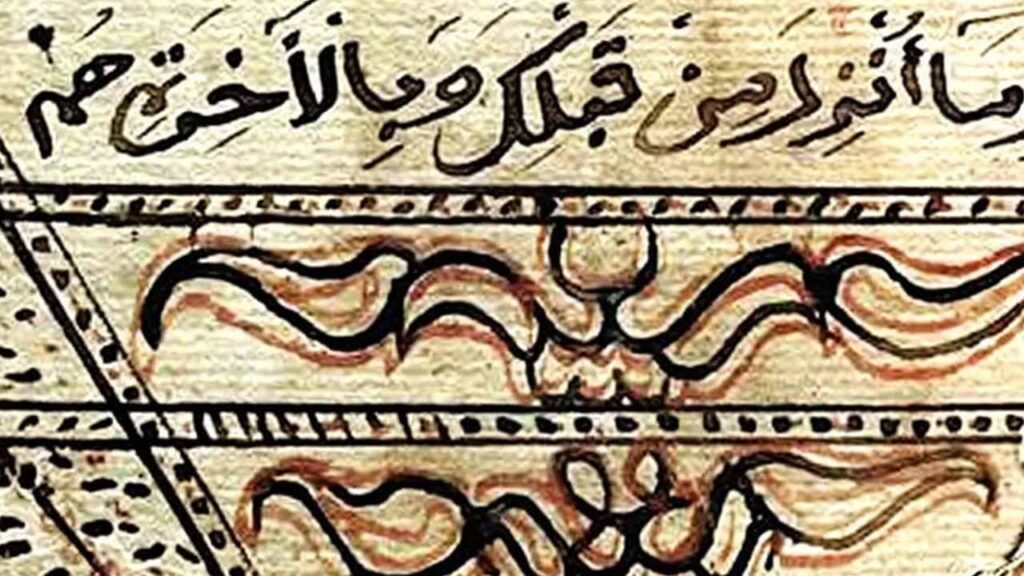 ما أنزل من قبلك وبالأخرة هم